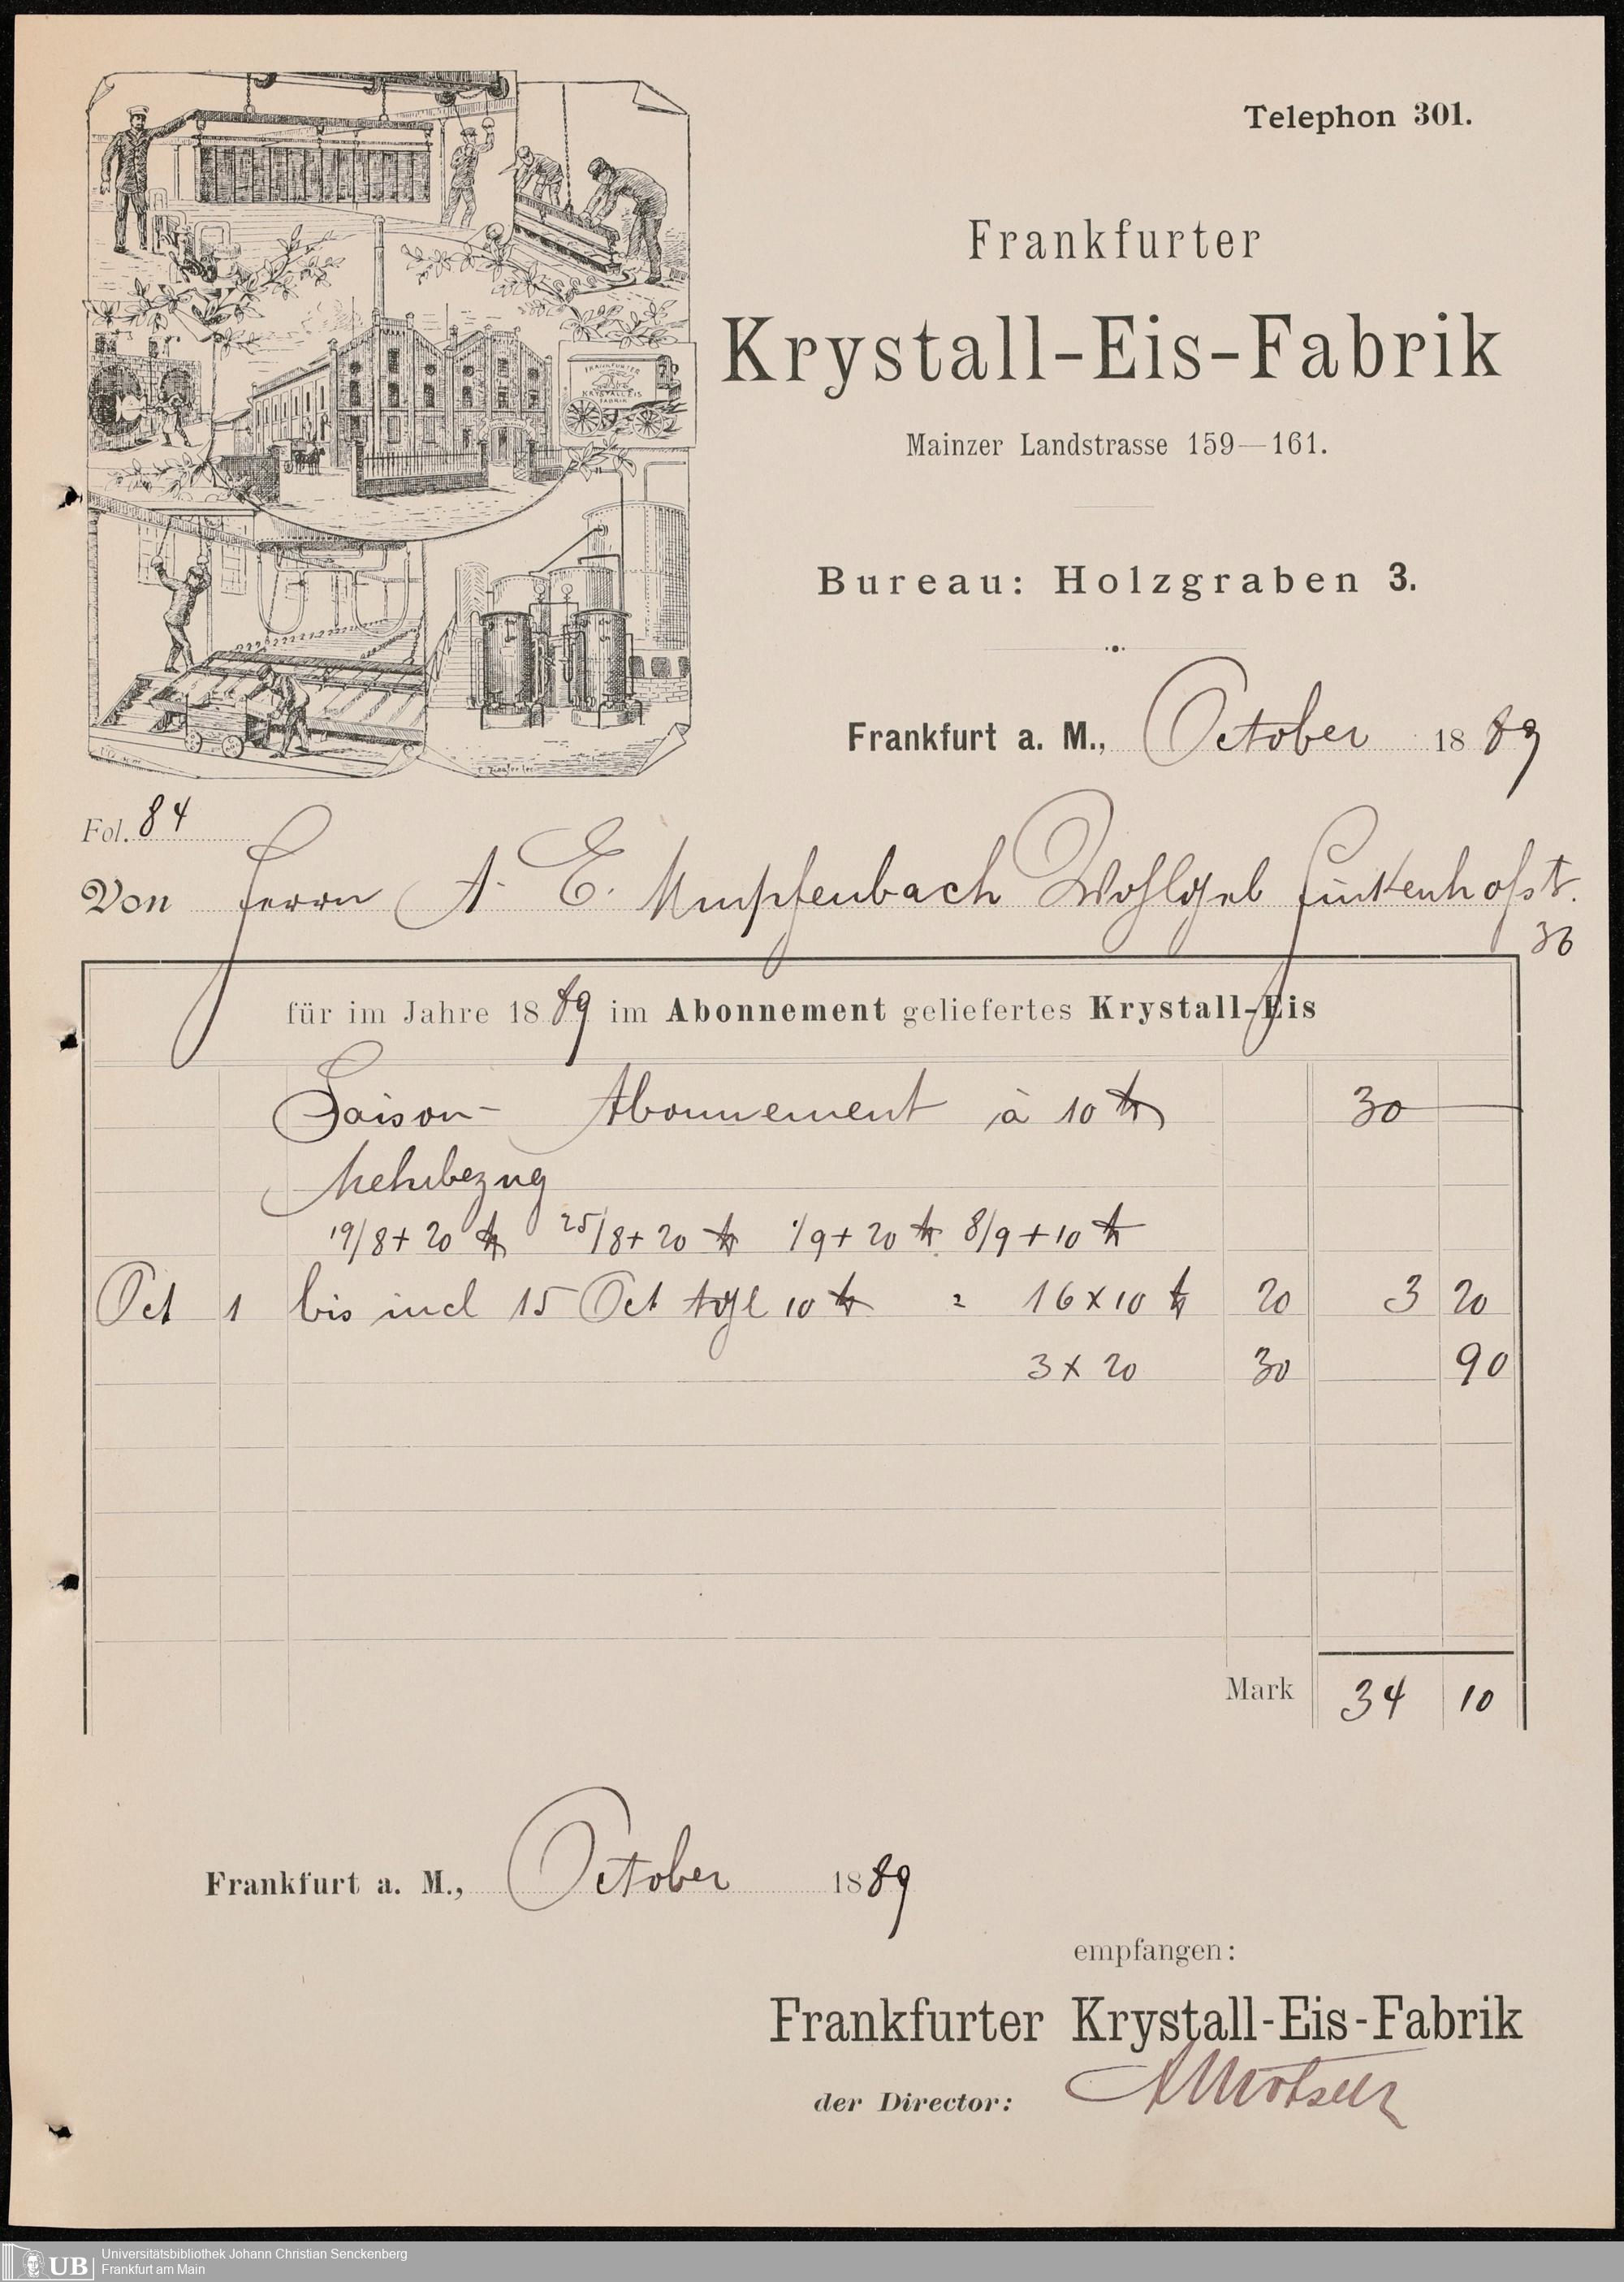 Telephon 301.
Frankfurter
Krystall-Eis-Fabrik
Mainzer Landstrasse 159—161.
Bureau: Holzgraben 3.
FRANKFURTER
KRYSTALLEIS
FABRIK
Frankfurt a. M., October 1889
Fol. 84
Von Herrn A. E. Umpfenbach Wohlgeb
36
für im Jahre 1889 im Abonnement geliefertes Krystall-Eis
Saison- Abonnement à 10 ℔ 30 —
Mehrbezug
19/8 + 20 ℔ 25/8 + 20 ℔ 1/9 + 20 ℔ 8/9 + 10 ℔
Oct 1 bis incl 15 Oct tägl 10 ℔ = 16 x 10 ℔ 20 3 20
3 x 20 30 90
Mark 34 10
Frankfurt a. M., October 1889
empfangen:
Frankfurter Krystall-Eis-Fabrik
der Director:
UB Universitätsbibliothek Johann Christian Senckenberg
Frankfurt am Main